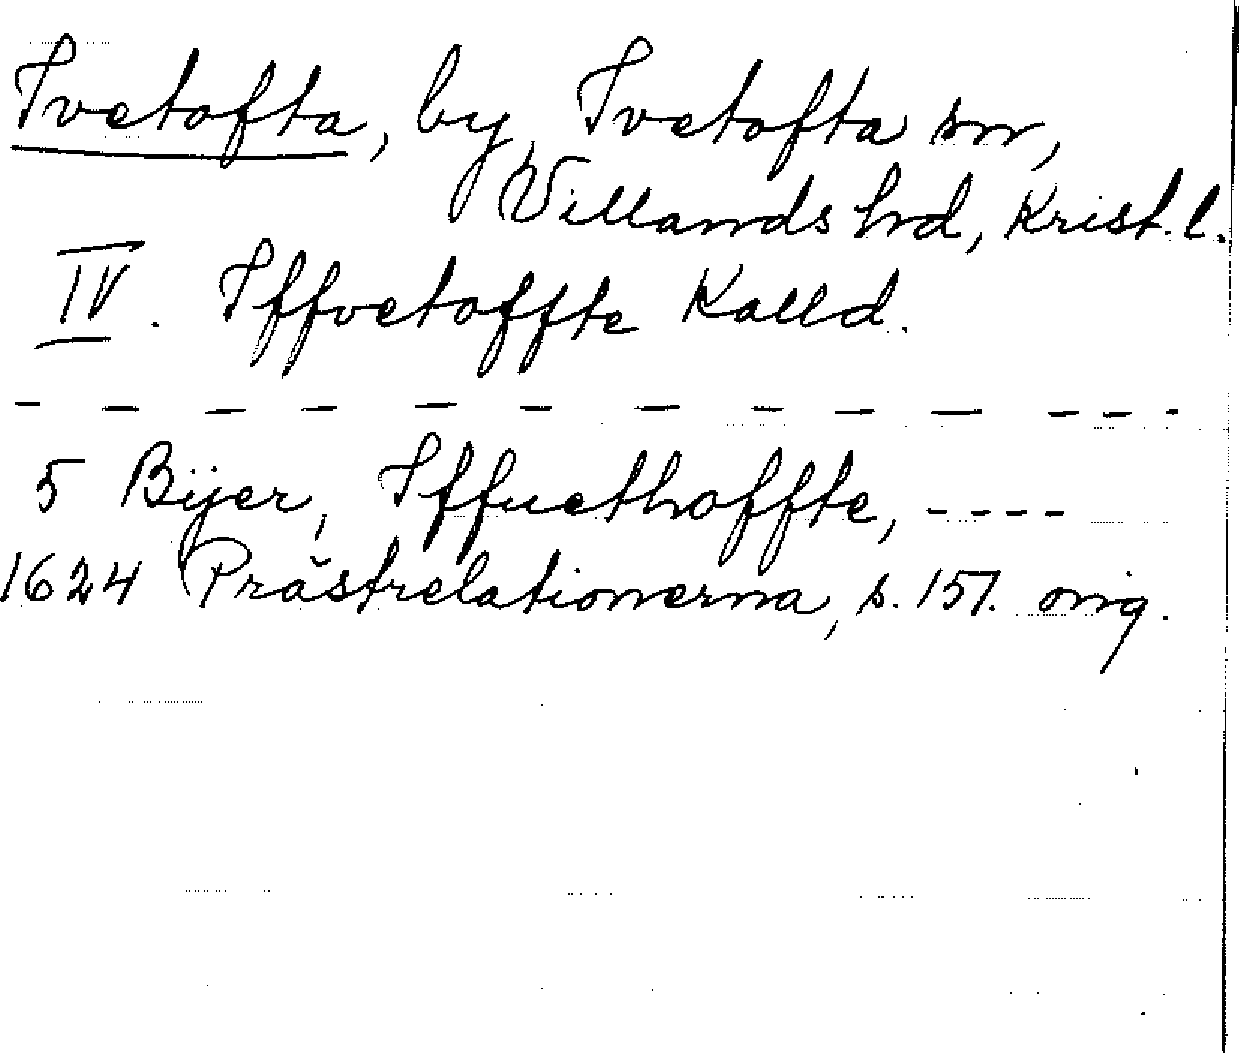 Ivetofta, by, Ivetofta sn,
Villands hrd, Krist. l.
IV. Iffvetoffte Kalld.
- - - - - - - - - - - - -
5 Bÿer, Iffuethoffte, ----
1624 Prästrelationerna, s. 157. orig.